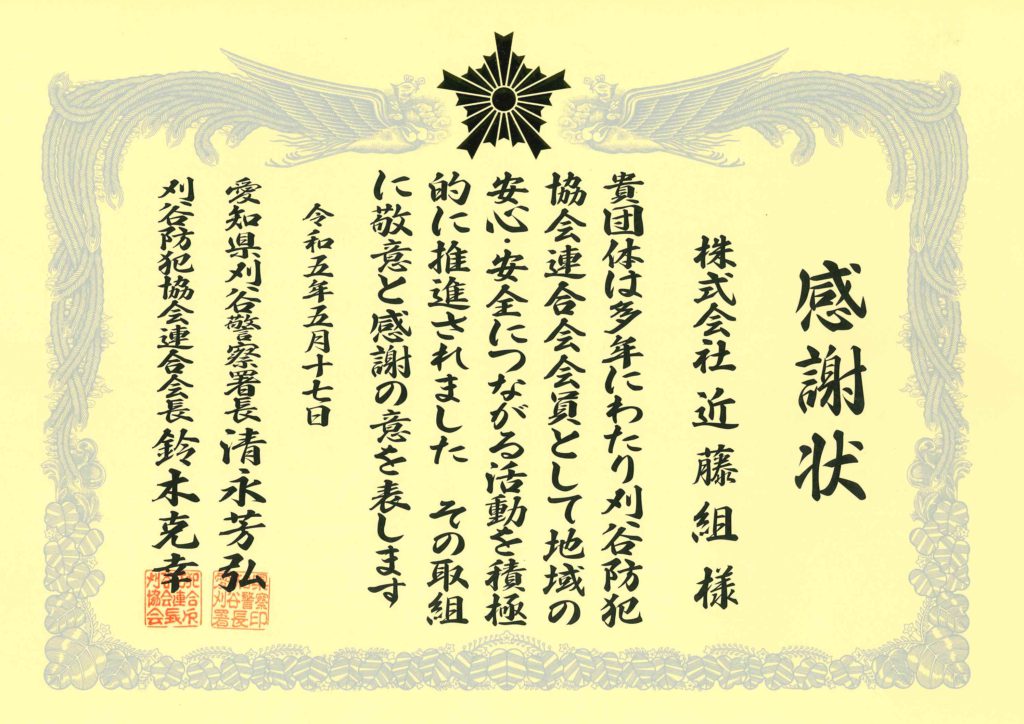 感謝状
株式会社 近藤組 様
貴団体は多年にわたり刈谷防犯
協会連合会会員として地域の
安心・安全につながる活動を積極
的に推進されました その取組
に敬意と感謝の意を表します
令和五年五月十七日
愛知県刈谷警察署長 清永芳弘
刈谷防犯協会連合会長 鈴木克幸